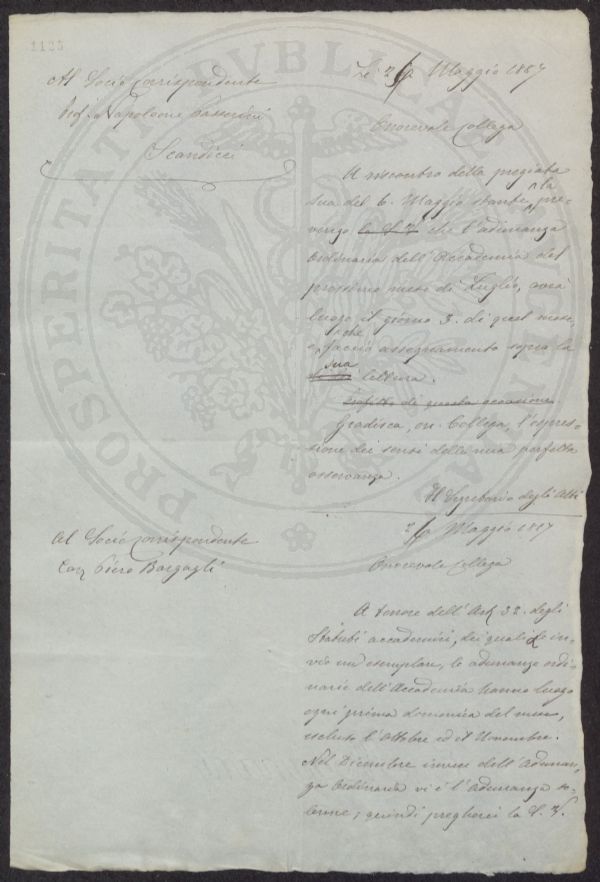 1125
Al Socio Corrispondente
Prof. Napoleone Passerini
Scandicci
Li 26 Maggio 1887
Onorevole Collega
A riscontro della pregiata
sua del 6. Maggio stante, la pre-
vengo la S. V. che l'adunanza
Ordinaria dell'Accademia del
prossimo mese di Luglio, avrà
luogo il giorno 3. di quel mese,
e che faccio assegnamento sopra la
sua lettura.
di questa occasione
Gradisca, on. Collega, l'espres-
sione dei sensi della mia perfetta
osservanza.
Il Segretario degli Atti
Al Socio Corrispondente
Cav. Piero Bargagli
26 Maggio 1887
Onorevole Collega
A tenore dell'Art. 32. degli
Statuti accademici, dei quali Le in-
vio un esemplare, le adunanze ordi-
narie dell'Accademia hanno luogo
ogni prima domenica del mese,
escluso l'Ottobre ed il Novembre.
Nel Dicembre invece dell'Adunan-
za Ordinaria vi è l'adunanza so-
lenne; quindi pregherei la S. V.
PROSPERITATI PUBLICAE AUGENDAE